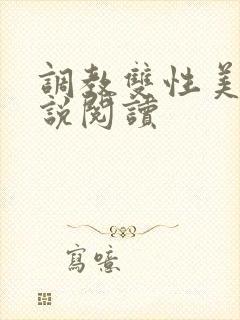 調教雙性美
說閱讀
寫噫